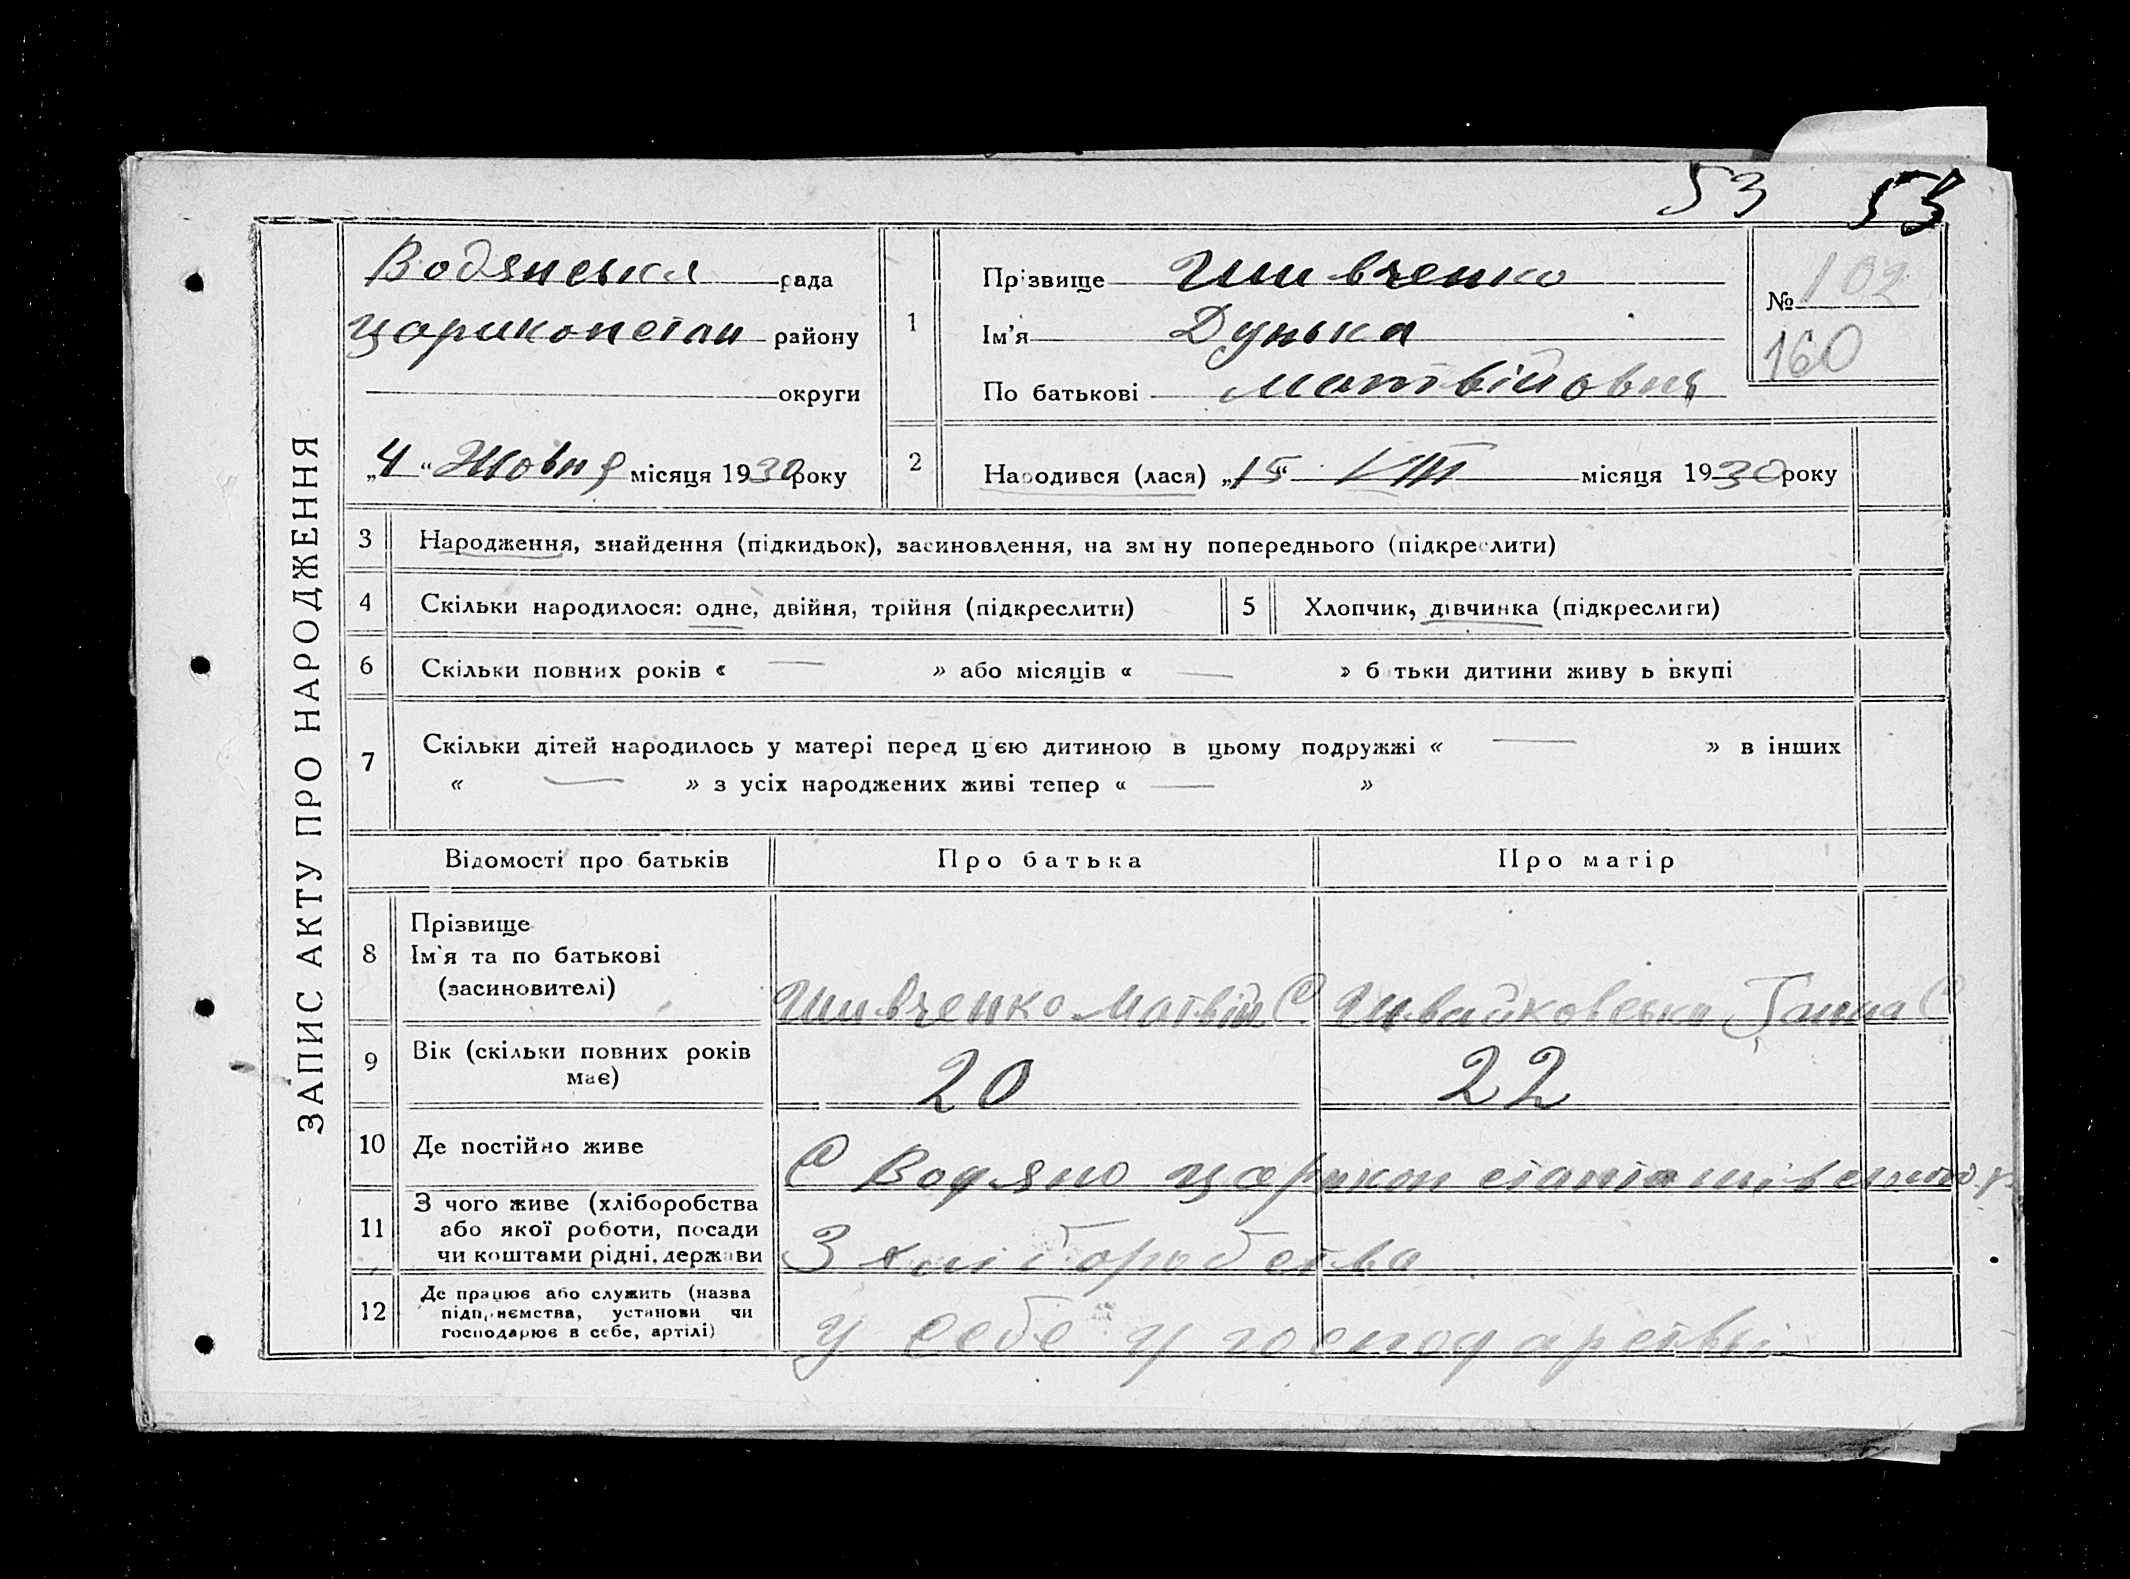 53 53
Водянська рада
район у
округи
„4“ Жовня місяця 1930 року
1
Прізвище Шивченко
Ім'я Дунька
По батькові Матвійовня
№ 102
160
2 Народився (лася) „15“ VIII місяця 1930 року
ЗАПИС АКТУ ПРО НАРОДЖЕННЯ
3 Народження, знайдення (підкидьок), засиновлення, на зміну попереднього (підкреслити)
4 Скільки народилося: одне, двійня, трійня (підкреслити) 5 Хлопчик, дівчинка (підкреслити)
6 Скільки повних років « — » або місяців « — » батьки дитини живуть вкупі
7 Скільки дітей народилось у матері перед цією дитиною в цьому подружжі « — » в інших
« — » з усіх народжених живі тепер « — »
Відомості про батьків Про батька Про матір
8 Прізвище
Ім'я та по батькові
(засиновителі)
Шивченко Матвій С. Швайковська Ганна С
9 Вік (скільки повних років
має)
20 22
10 Де постійно живе
С Водяно
11 З чого живе (хліборобства
або якої роботи, посади
чи коштами рідні, держави
З хліборобства
12 Де працює або служить (назва
підприємства, установи чи
господарює в себе, артілі)
у себе у господарстві